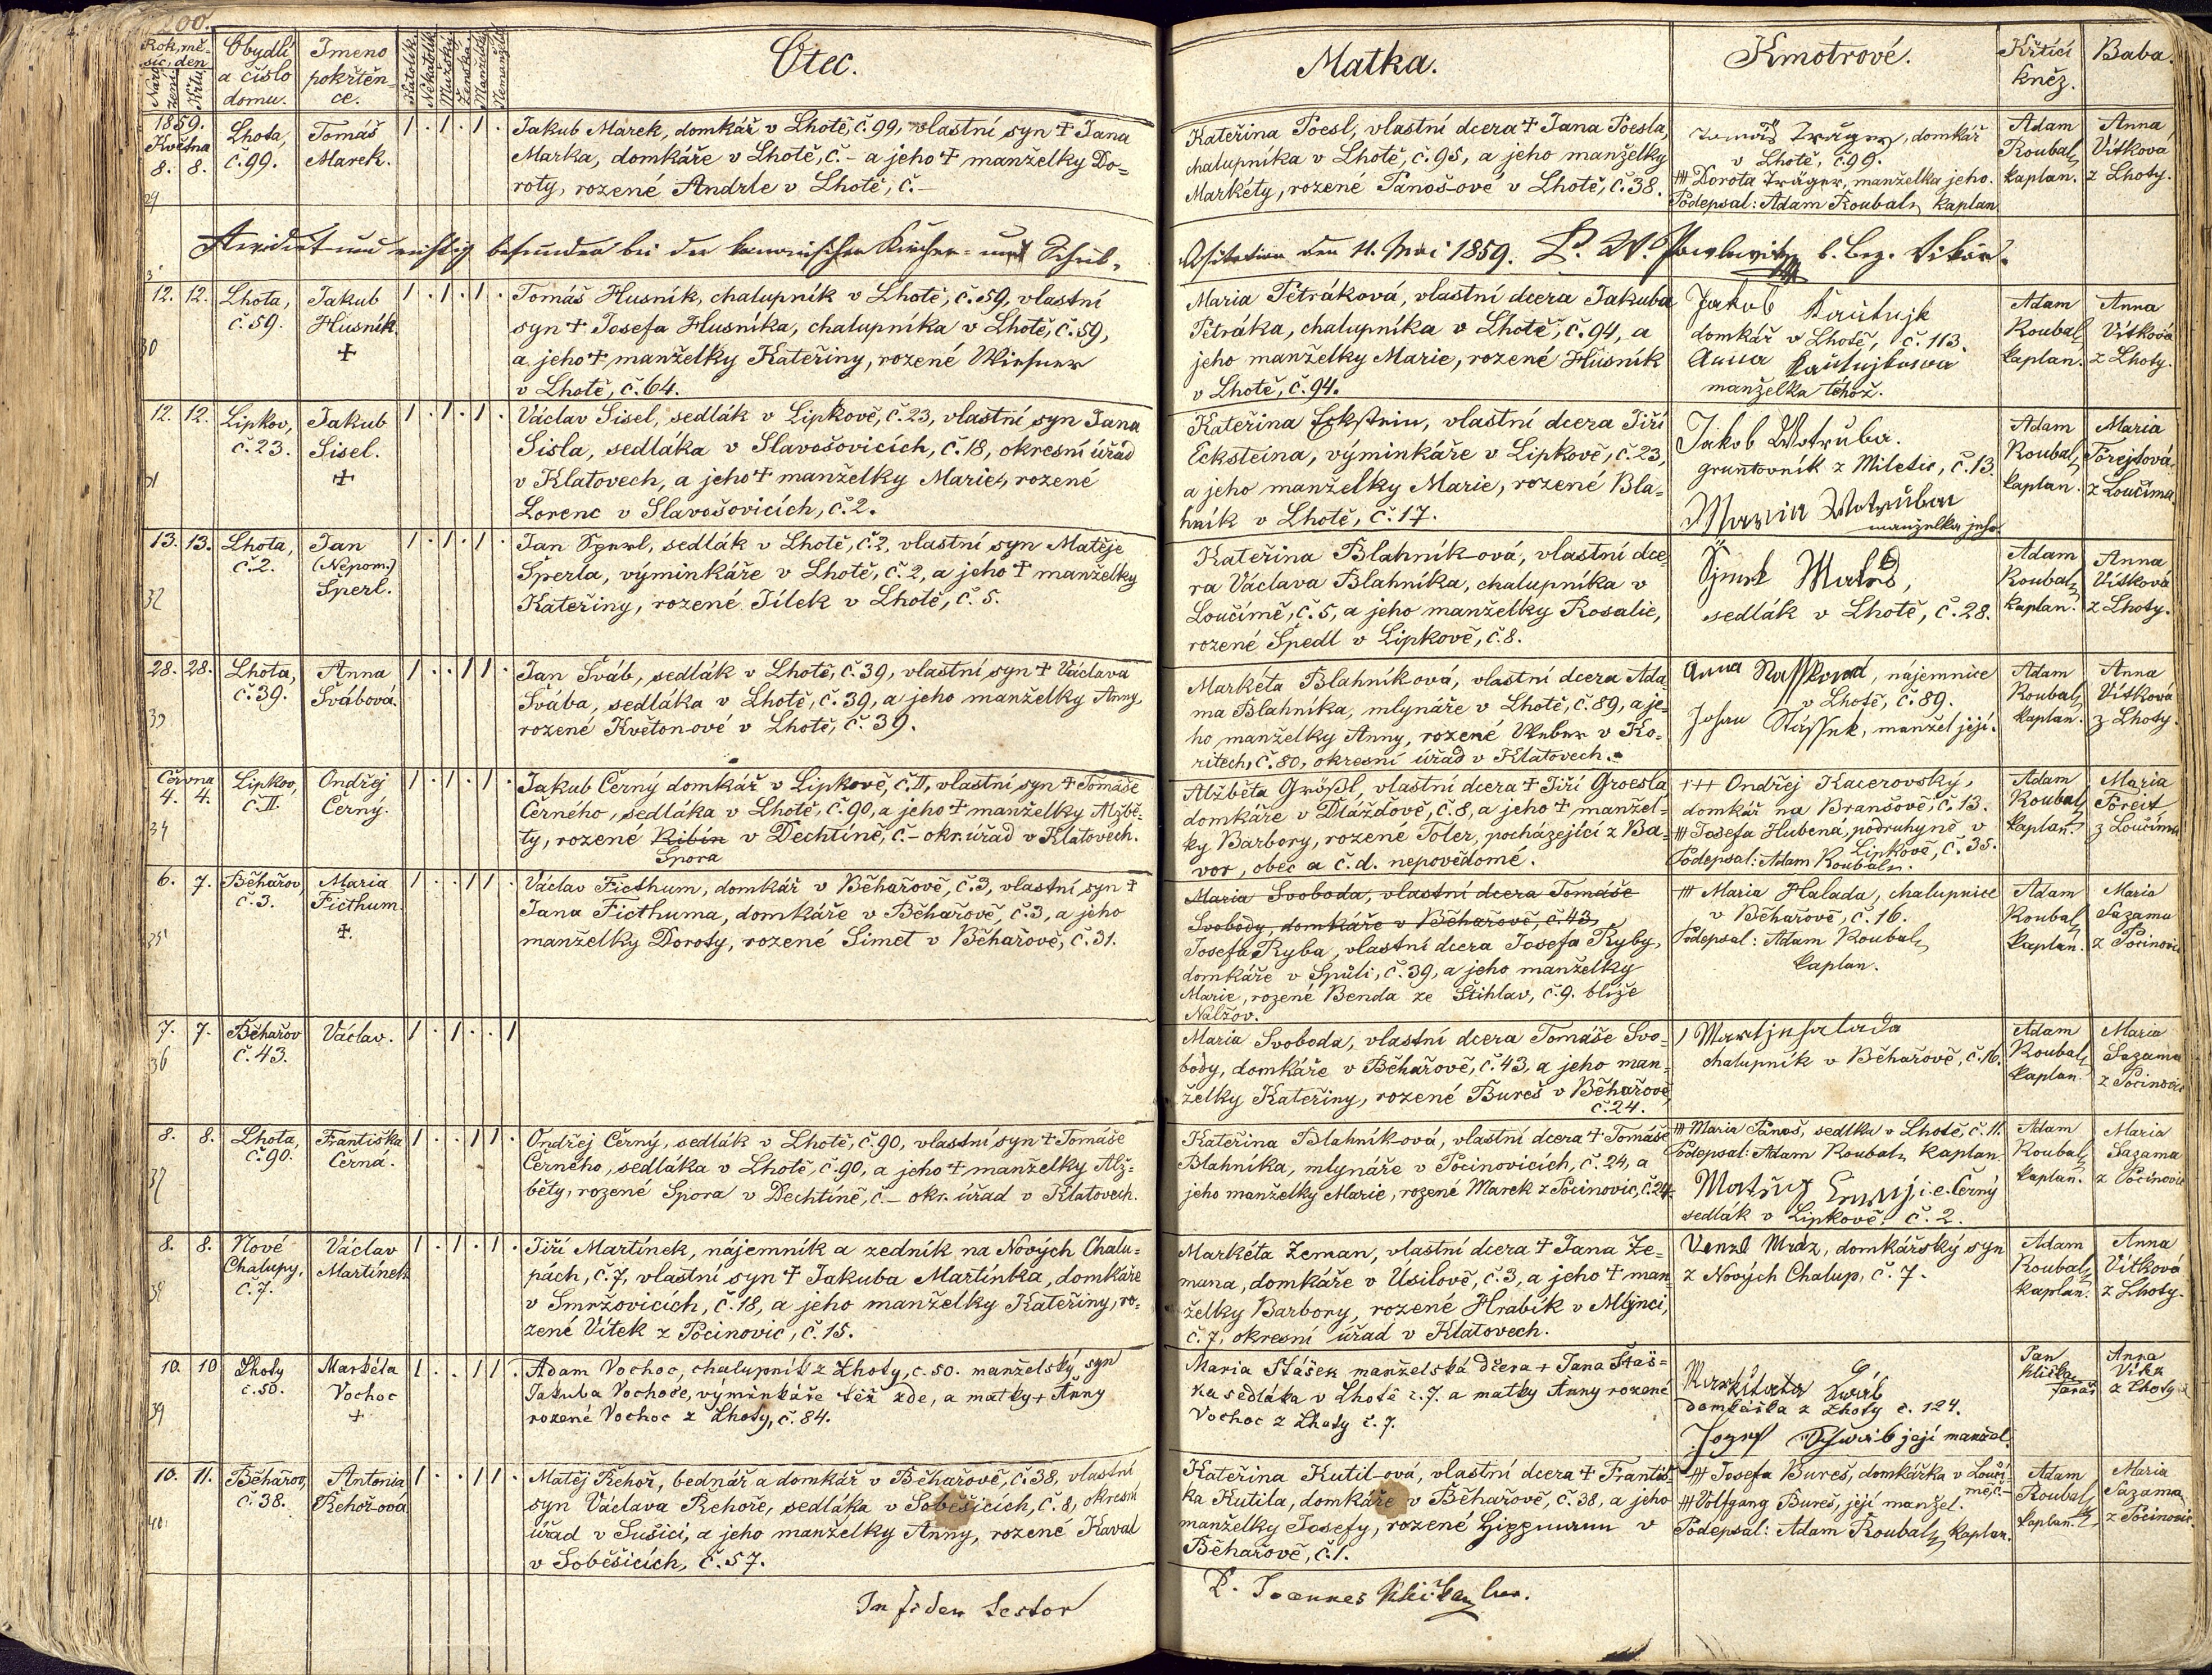 200.
Rok, mě-
síc, den
Naro-
zení
Křtu
Obydlí
a číslo
domu.
Jmeno
pokřtěn-
ce.
Katolík.
Nekatolík
Mužský.
Ženská.
Manželský
Nemanželský
Otec.
1859.
Května
8. 8.
29
Lhota,
č. 99.
Tomáš
Marek.
1 . 1 . 1 .
Jakub Marek, domkář v Lhotě, č. 99, vlastní syn + Jana
Marka, domkáře v Lhotě, č. - a jeho + manželky Do=
roty, rozené Andrle v Lhotě, č. -
Revidirt und richtig befunden bei der kanonischen Kirchen- und Schul-
12. 12.
30
Lhota,
č. 59.
Jakub
Husník
+
1 . 1 . 1 .
Tomáš Husník, chalupník v Lhotě, č. 59, vlastní
syn + Josefa Husníka, chalupníka v Lhotě, č. 59,
a jeho + manželky Kateřiny, rozené Wiesner
v Lhotě, č. 64.
12. 12.
31
Lipkov,
č. 23.
Jakub
Sisel.
+
1 . 1 . 1 .
Václav Sisel, sedlák v Lipkově, č. 23, vlastní syn Jana
Sisla, sedláka v Slavošovicích, č. 18, okresní úřad
v Klatovech, a jeho + manželky Marie, rozené
Lorenc v Slavošovicích, č. 2.
13. 13.
32
Lhota,
č. 2.
Jan
(Nepom.)
Šperl.
1 . 1 . 1 .
Jan Šperl, sedlák v Lhotě, č. 2, vlastní syn Matěje
Šperla, výminkáře v Lhotě, č. 2, a jeho + manželky
Kateřiny, rozené Jílek v Lhotě, č. 5.
28. 28.
33
Lhota,
č. 39.
Anna
Švábová.
1 . . 1 1 .
Jan Šváb, sedlák v Lhotě, č. 39, vlastní syn + Václava
Švába, sedláka v Lhotě, č. 39, a jeho manželky Anny,
rozené Květonové v Lhotě, č. 39.
Června
4. 4.
34
Lipkov,
č. II.
Ondřej
Černý.
1 . 1 . 1 .
Jakub Černý domkář v Lipkově, č. II, vlastní syn + Tomáše
Černého, sedláka v Lhotě, č. 90, a jeho + manželky Alžbě-
ty, rozené Ribín v Dechtíně, č. - okr. úřad v Klatovech.
Spora
6. 7.
35
Běhařov
č. 3.
Maria
Ficthum.
+.
1 . . 1 1 .
Václav Ficthum, domkář v Běhařově, č. 3, vlastní syn +
Jana Ficthuma, domkáře v Běhařově, č. 3, a jeho
manželky Doroty, rozené Simet v Běhařově, č. 31.
7. 7.
36
Běhařov
č. 43.
Václav.
1 . 1 . . 1
8. 8.
37
Lhota,
č. 90.
Františka
Černá.
1 . . 1 1 .
Ondřej Černý, sedlák v Lhotě, č. 90, vlastní syn + Tomáše
Černého, sedláka v Lhotě, č. 90, a jeho + manželky Alž=
běty, rozené Spora v Dechtíně, č. - okr. úřad v Klatovech.
8. 8.
38
Nové
Chalupy,
č. 7.
Václav
Martínek
1 . 1 . 1 .
Jiří Martínek, nájemník a zedník na Nových Chalu=
pách, č. 7, vlastní syn + Jakuba Martínka, domkáře
v Smržovicích, č. 18, a jeho manželky Kateřiny, ro=
zené Vítek z Pocinovic, č. 15.
10. 10
39
Lhoty
č. 50.
Markéta
Vochoc
+
1 . . 1 1 .
Adam Vochoc, chalupník z Lhoty, č. 50. manželský syn
Jakuba Vochoce, výminkáře též zde, a matky + Anny
rozené Vochoc z Lhoty, č. 84.
10. 11.
40
Běhařov,
č. 38.
Antonia
Řehořova
1 . . 1 1 .
Matěj Řehoř, bednář a domkář v Běhařově, č. 38, vlastní
syn Václava Řehoře, sedláka v Soběšicích, č. 8, okresní
úřad v Sušici, a jeho manželky Anny, rozené Kaval
v Soběšicích, č. 57.
In fidem testor
Matka.
Kmotrové.
Křtící
kněz.
Baba.
Kateřina Poesl, vlastní dcera + Jana Poesla,
chalupníka v Lhotě, č. 95, a jeho manželky
Markéty, rozené Panoš-ové v Lhotě, č. 38.
Tomáš Träger, domkář
v Lhotě, č. 99.
+++ Dorota Träger, manželka jeho.
Podepsal: Adam Roubal, kaplan
Adam
Roubal,
kaplan.
Anna
Vítková
z Lhoty.
Visitation den 11. Mai 1859. b. Bez. Vikär.
Maria Petráková, vlastní dcera Jakuba
Petráka, chalupníka v Lhotě, č. 94, a
jeho manželky Marie, rozené Husník
v Lhotě, č. 94.
Jakob
domkář v Lhotě, č. 113.
Anna
manželka téhož.
Adam
Roubal,
kaplan.
Anna
Vítková
z Lhoty.
Kateřina Eckstein, vlastní dcera Jiří
Ecksteina, výminkáře v Lipkově, č. 23,
a jeho manželky Marie, rozené Bla=
hník v Lhotě, č. 17.
Jakob Wotruba.
gruntovník z Miletic, č. 13
Maria Wotruba
manželka jeho.
Adam
Roubal,
kaplan.
Maria
Forejtová
z Loučima
Kateřina Blahník-ová, vlastní dce-
ra Václava Blahníka, chalupníka v
Loučímě, č. 5, a jeho manželky Rosalie,
rozené Špedl v Lipkově, č. 8.
sedlák v Lhotě, č. 28.
Adam
Roubal,
kaplan.
Anna
Vítková
z Lhoty.
Markéta Blahníková, vlastní dcera Ada-
ma Blahníka, mlynáře v Lhotě, č. 89, a je-
ho manželky Anny, rozené Weber v Ko-
ritech, č. 80, okresní úřad v Klatovech.
Anna, nájemnice
v Lhotě, č. 89.
Johan, manžel její.
Adam
Roubal,
kaplan.
Anna
Vítková
z Lhoty.
Alžběta Größl, vlastní dcera + Jiří Groesla
domkáře v Dlážďově, č. 8, a jeho + manžel-
ky Barbory, rozené Toler, pocházející z Ba-
vor, obec a č. d. nepovědomé.
+++ Ondřej Kacerovský,
domkář na Branšově, č. 13.
+++ Josefa Hubená, podruhyně v
Lipkově, č. 35.
Podepsal: Adam Roubal,
Adam
Roubal,
kaplan.
Maria
Foreit
z Loučima
Maria Svoboda, vlastní dcera Tomáše
Svobody, domkáře v Běhařově, č. 43,
Josefa Ryba, vlastní dcera Josefa Ryby,
domkáře v Spůli, č. 39, a jeho manželky
Marie, rozené Benda ze Štihlav, č. 9. blíže
Nalžov.
+++ Maria Halada, chalupnice
v Běhařově, č. 16.
Podepsal: Adam Roubal,
kaplan.
Adam
Roubal,
kaplan.
Maria
Sazama
z Pocinovic
Maria Svoboda, vlastní dcera Tomáše Svo-
body, domkáře v Běhařově, č. 43, a jeho man-
želky Kateřiny, rozené Bureš v Běhařově,
č. 24.
chalupník v Běhařově, č. 16.
Adam
Roubal,
kaplan.
Maria
Sazama
z Pocinovic
Kateřina Blahníková, vlastní dcera + Tomáše
Blahníka, mlynáře v Pocinovicích, č. 24, a
jeho manželky Marie, rozené Marek z Pocinovic, č. 24.
+++ Maria Panoš, sedlka v Lhotě, č. 11.
Podepsal: Adam Roubal, kaplan.
i. e. Černý
sedlák v Lipkově, č. 2.
Adam
Roubal,
kaplan.
Maria
Sazama
z Pocinovic
Markéta Zeman, vlastní dcera + Jana Ze=
mana, domkáře v Úsilově, č. 3, a jeho + man-
želky Barbory, rozené Hrabík v Mlýnci,
č. 7, okresní úřad v Klatovech.
Venzl Mráz, domkářský syn
z Nových Chalup, č. 7.
Adam
Roubal,
kaplan.
Anna
Vítková
z Lhoty.
Maria Stášek manželská dcera + Jana Staš=
ka sedláka v Lhotě č. 7. a matky Anny rozené
Vochoc z Lhoty č. 7.
domkářka z Lhoty č. 124.
Jozef její manžel.
Jan
Klička
farář
Anna
Vítk
z Lhoty
Kateřina Kutil-ová, vlastní dcera + Františ-
ka Kutila, domkáře v Běhařově, č. 38, a jeho
manželky Josefy, rozené Hippmann v
Běhařově, č. 1.
+++ Josefa Bureš, domkářka v Loučí-
mě, č. -
+++ Volfgang Bureš, její manžel.
Podepsal: Adam Roubal, kaplan.
Adam
Roubal,
kaplan.
Maria
Sazama
z Pocinovic.
P. Joannes Klička